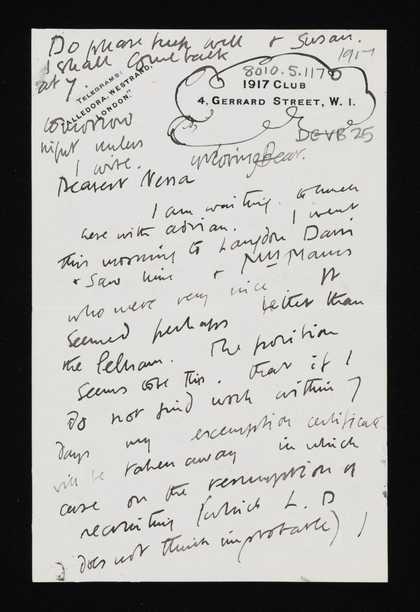 Do please keep well & Susan.
I shall come back
at 7
tomorrow
night unless
I wire.
TELEGRAMS:
"ALLEDORA, WESTRAND,
LONDON."
1917
8010.5.1170
1917 CLUB
4, GERRARD STREET, W. I.
DEVB 25
Bear.
Dearest Nessa
I am waiting to lunch
here with Adrian. I went
this morning to Langdon Davis
& saw him & Miss
who were very nice. It
seemed perhaps better than
the Pelham. The position
seems to be this. that if I
do not find work within 7
days my exemption certificate
will be taken away in which
case on the resumption of
recruiting (which L. D
does not think improbable) I